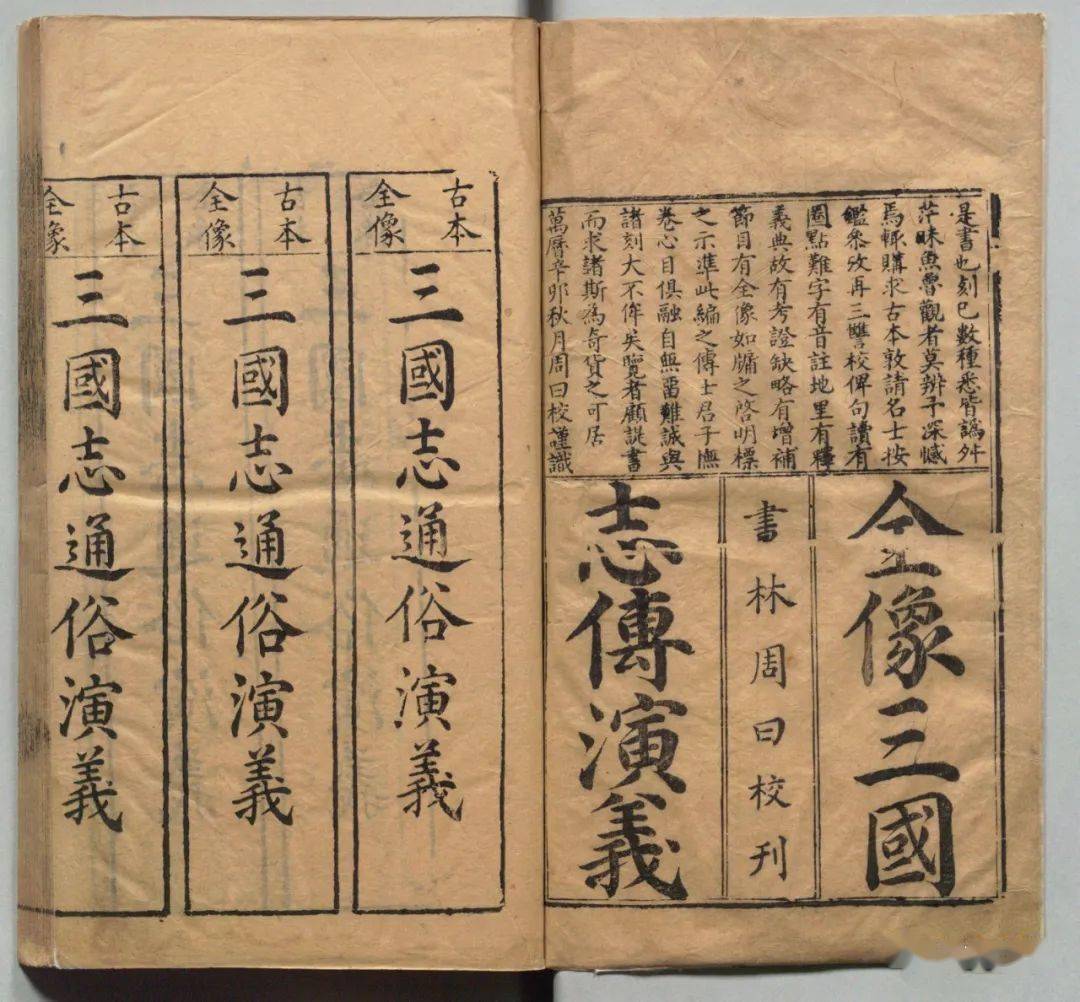 是書也刻已數種悉皆譌舛
茫昧魚魯觀者莫辨予深憾
焉輒購求古本敦請名士按
鑑參攷再三讐校俾句讀有
圈點難字有音註地里有釋
義典故有考證缺略有增補
節目有全像如牖之啓明標
之示準此編之傳士君子撫
卷心目俱融自無留難誠與
諸刻大不侔矣覽者顧諟書
而求諸斯為奇貨之可居
萬曆辛卯秋月周曰校謹識
全像三國
書林周曰校刊
志傳演義
古本
全像
三國志通俗演義
古本
全像
三國志通俗演義
古本
全像
三國志通俗演義